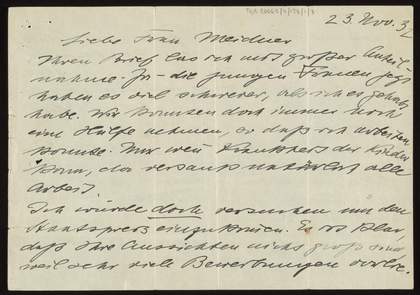 23. Nov. 32
Liebe Frau Meidner
Ihren Brief las ich mit großer Anteil
nahme. Ja - die jungen Frauen jetzt
haben es viel schwerer, als ich es gehabt
habe. Wir konnten doch immer noch
eine Hülfe nehmen, so daß ich arbeiten
konnte. Nur wenn Krankheit der Kinder
kam, da versank natürlich alle
Arbeit.
Ich würde doch versuchen um den
Staatspreis einzukommen. Es ist klar
daß Ihre Aussichten nicht groß sind
weil sehr viele Bewerbungen